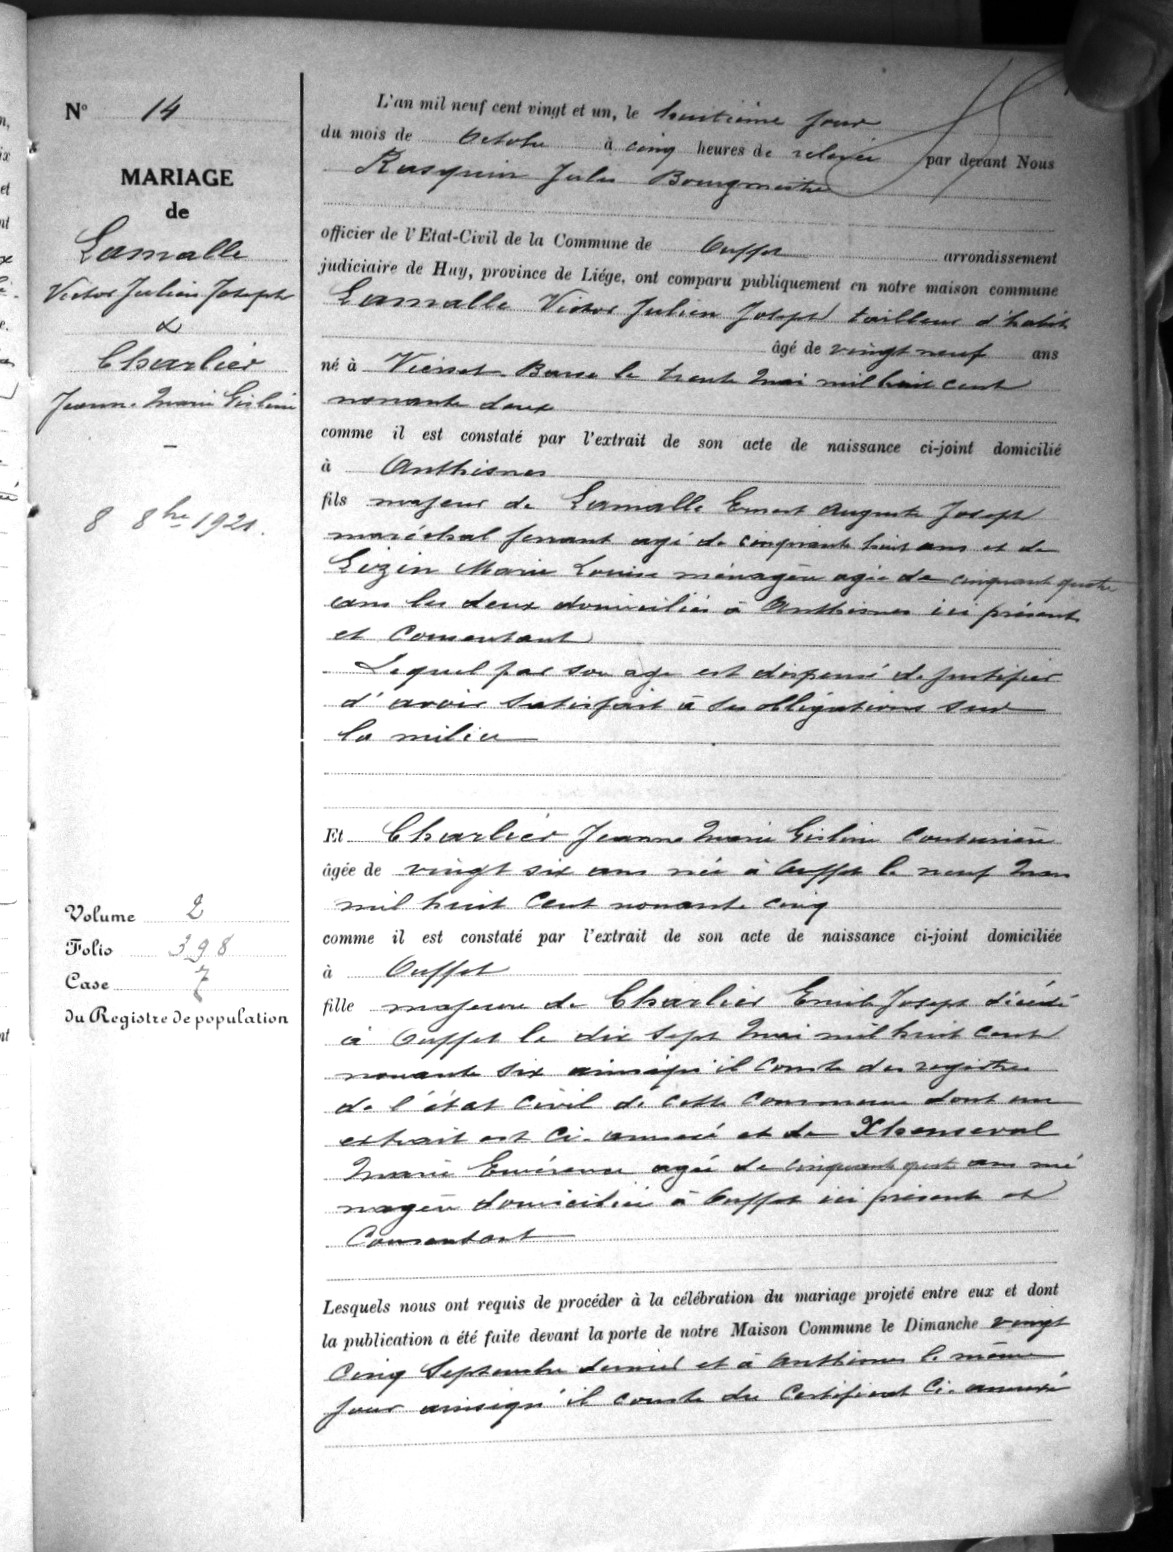 N° 14
MARIAGE
de
Lamalle
Victor Julien Joseph
&
Charlier
Jeanne Marie Gislaine
8 8bre 1921.
Volume 2
Folio 398
Case 7
du Registre de population
L'an mil neuf cent vingt et un, le huitième jour
du mois de Octobre à cinq heures de relevée par devant Nous
Rasquin Jules Bourgmestre
officier de l'Etat-Civil de la Commune de Ouffet arrondissement
judiciaire de Huy, province de Liége, ont comparu publiquement en notre maison commune
Lamalle Victor Julien Joseph tailleur d'habit
âgé de vingt neuf ans
né à Vierset-Barse le trente Mai mil huit cent
nonante deux
comme il est constaté par l'extrait de son acte de naissance ci-joint domicilié
à Anthisnes
fils majeur de Lamalle Ernest Auguste Joseph
maréchal ferrant agé de cinquante huit ans et de
Lizin Marie Louise ménagère agée de cinquante quatre
ans les deux domiciliés à Anthisnes ici présents
et consentant
Lequel par son age est dispensé de justifier
d'avoir satisfait à ses obligations sur
la milice
Et Charlier Jeanne Marie Gislaine couturière
âgée de vingt six ans née à Ouffet le neuf Mars
mil huit cent nonante cinq
comme il est constaté par l'extrait de son acte de naissance ci-joint domiciliée
à Ouffet
fille majeure de Charlier Emile Joseph décédé
à Ouffet le dix sept Mai mil huit cent
nonante six ainsiqu'il conste des registres
de l'état civil de cette commune dont un
extrait est ci-annexé et de Xhenseval
Marie agée de cinquante quatre ans mé
nagère domiciliée à Ouffet ici présente et
Consentant
Lesquels nous ont requis de procéder à la célébration du mariage projeté entre eux et dont
la publication a été faite devant la porte de notre Maison Commune le Dimanche vingt
cinq Septembre dernier et à Anthisnes le même
jour ainsiqu'il conste du certificat ci-annexé